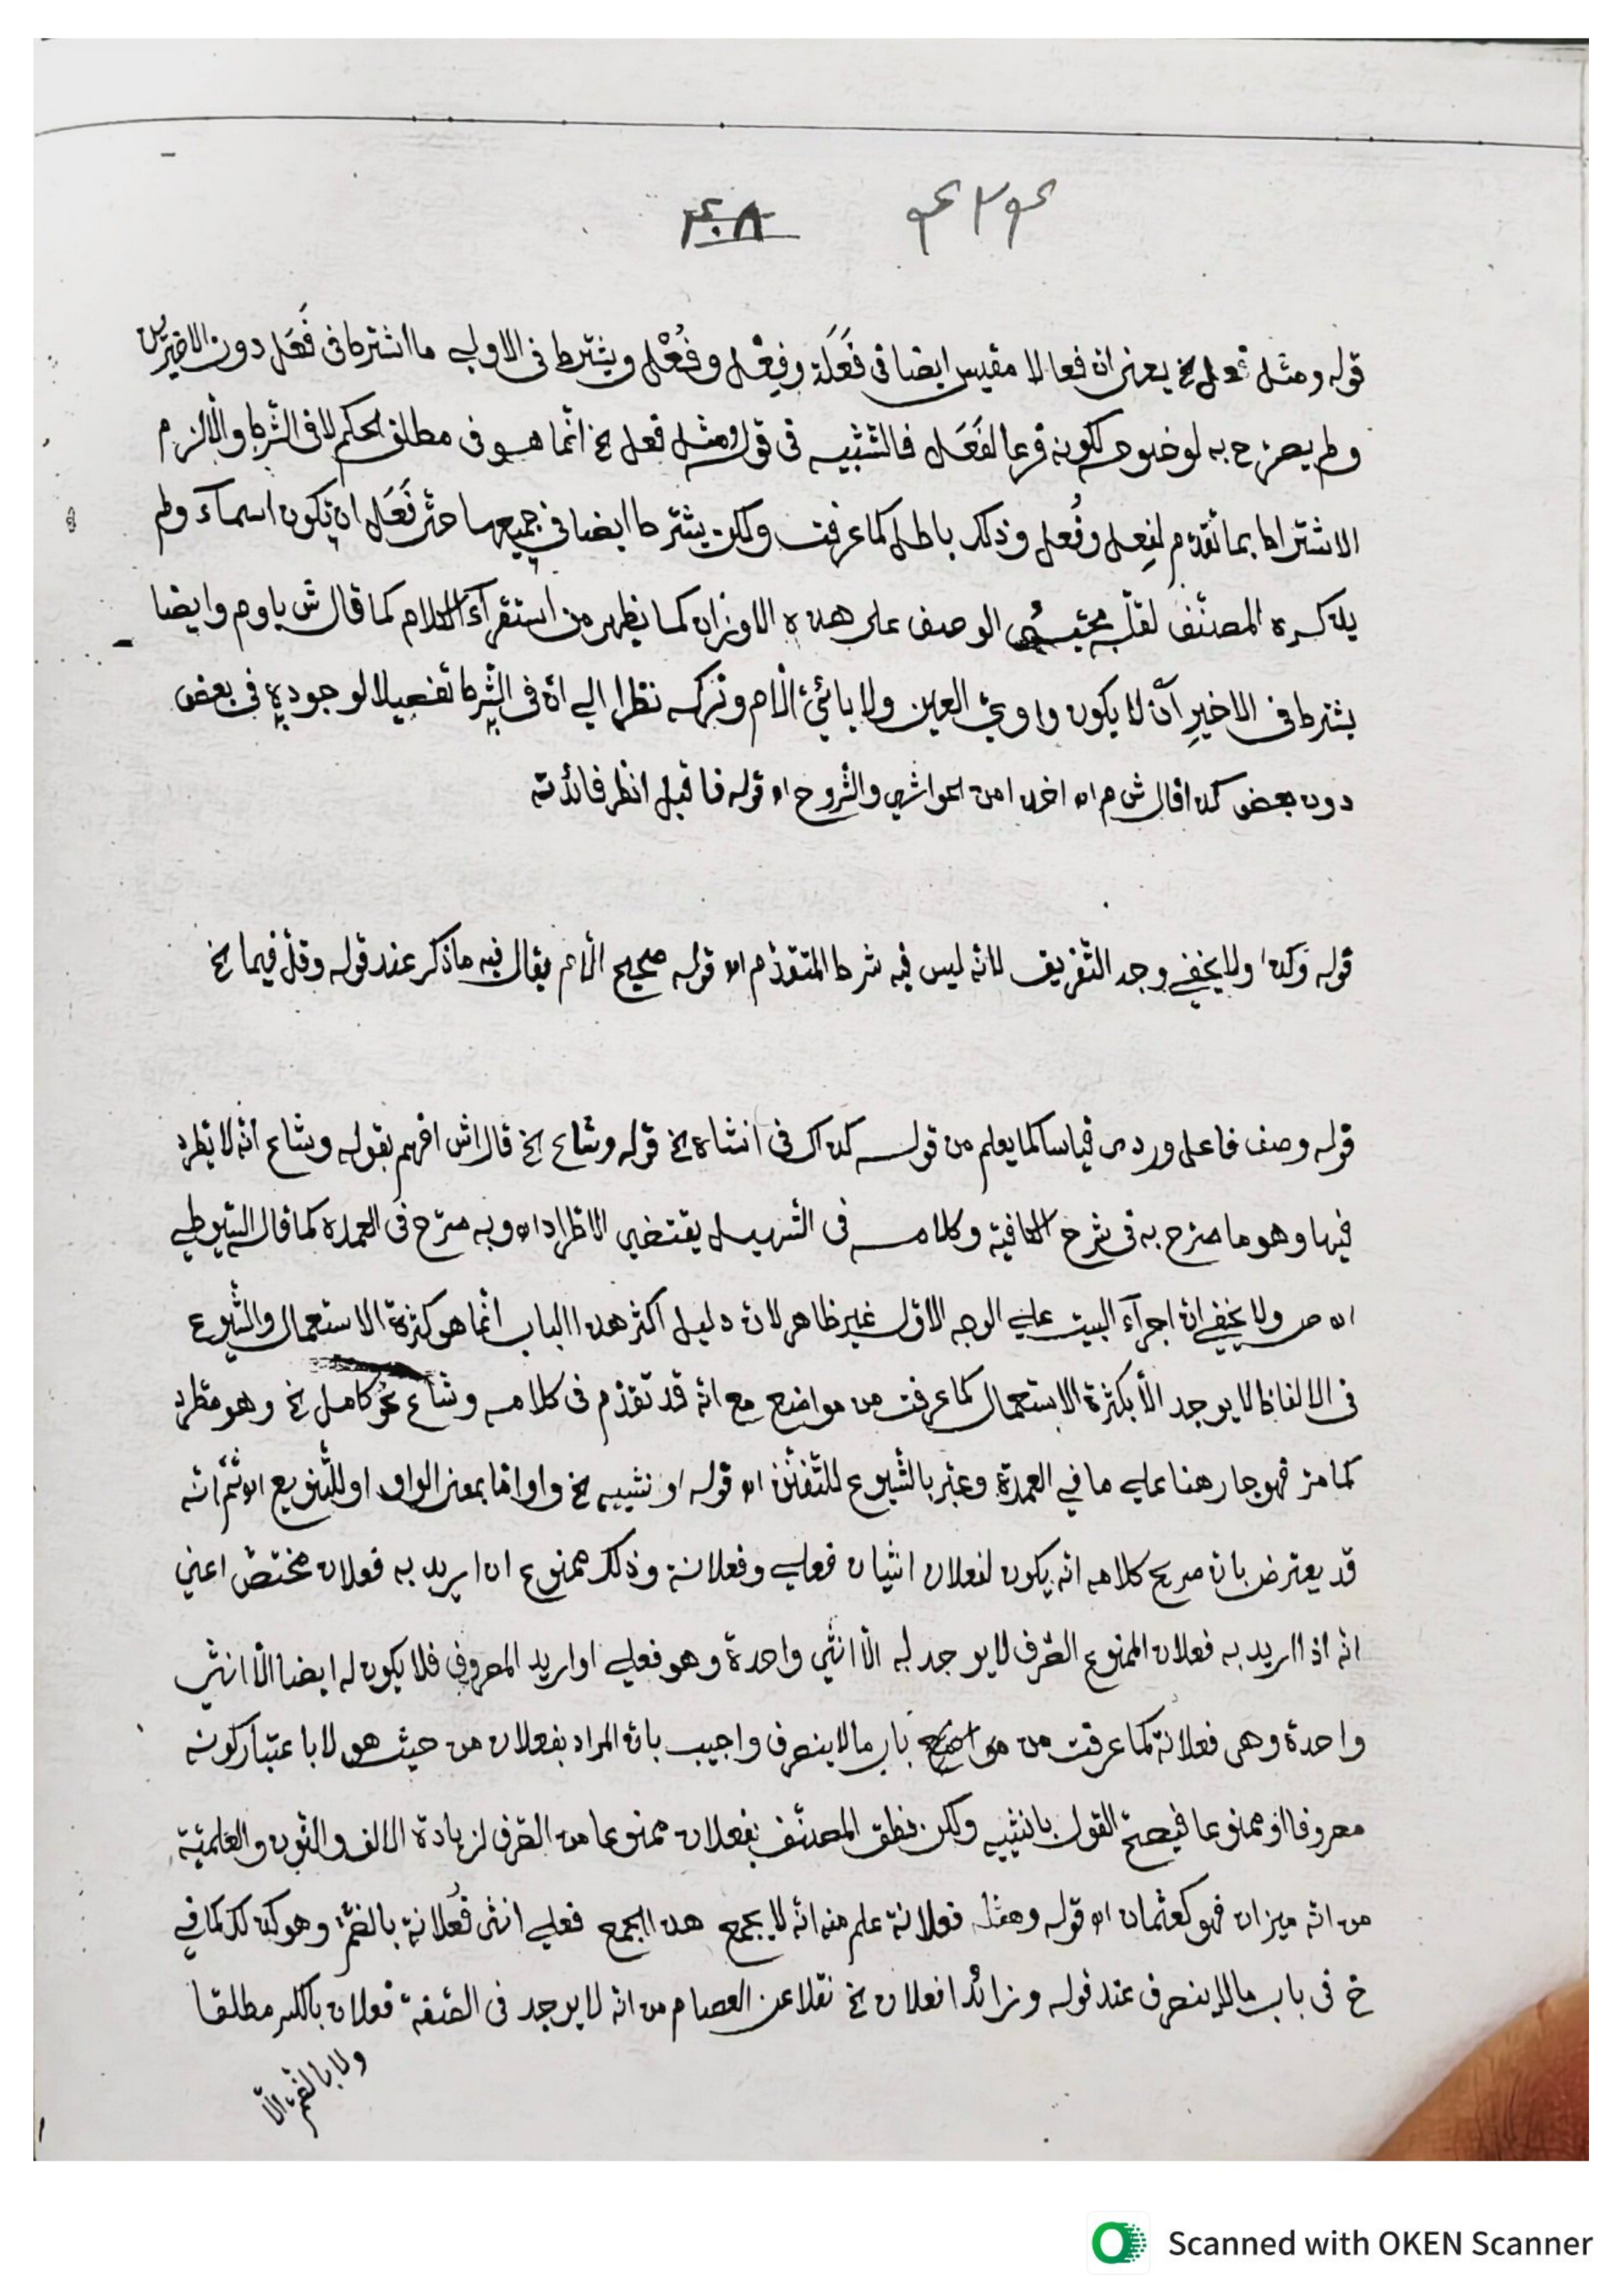 قوله ومثل فعل الخ يعنى ان فعالا مقيس ايضا فى فَعَلَة وفِعْل وفُعْل ويشترط فى الاولى ما اشترط فى فَعَل دون الاخيرين
ولم يصرّح به لوضوحه لكونه فرعا لفَعَل فالتّشبيه فى قوله ومثل فعل الخ انّما هو فى مطلق الحكم لا فى الشّرط والّا لزم
الاشتراط بما تقدّم لفِعل وفُعل وذلك باطل كما عرفت ولكن يشترط ايضا فى جميعها حتّى فَعَل ان تكون اسمآء ولم
يذكره المصنّف لقلّة مجيئ الوصف على هذه الاوزان كما يظهر من استقرآء الكلام كما قال ش يا وم وايضا
يشترط فى الاخير آن لا يكون واويّ العين ولا يائيّ الّام وتركه نظرا الى انّ فى الشّرط تفصيلا لوجوده فى بعض
دون بعض كذا قال ش م اه اخذا من الحواشى والشّروح اه قوله فاقبل انظر فائدته
قوله وكذا ولا يخفى وجه التّفريق لانّه ليس فيه شرط المتقدّم اه قوله صحيح الّام يقال فيه ما ذكر عند قوله وقلّ فيما الخ
قوله وصف فاعل ورد ى قياسا كما يعلم من قوله كذاك فى انثاه الخ قوله وشاع الخ قال اش افهم بقوله وشاع انّه لا يطّرد
فيها وهو ما صرّح به فى شرح الكافية وكلامه فى التّسهيل يقتضى الاطّراد اه وبه صرّح فى العمدة كما قال السّيوطى
اه ص ولا يخفى انّ اجرآء البيت على الوجه الاوّل غير ظاهر لانّ دليل اكثر هذا الباب انّما هو كثرة الاستعمال والشّيوع
فى الالفاظ لا يوجد الّا بكثرة الاستعمال كما عرفت من مواضع مع انّه قد تقدّم فى كلامه وشاع نحو كامل الخ وهو مطّرد
كما مرّ فهو جار هنا على ما فى العمدة وعبّر بالشّيوع للتّفنّن اه قوله او نثييه الخ واو امّا بمعنى الواو او للتّنويع اه ثمّ انّه
قد يعترض بانّ صريح كلامه انّه يكون لفعلان انثيان فعلى وفعلانة وذلك ممنوع ان اريد به فعلان مختصّ اعنى
انّه اذا اريد به فعلان الممنوع الصّرف لا يوجد له الّا انثى واحدة وهو فعلى او اريد المصروف فلا يكون له ايضا الّا انثى
واحدة وهى فعلانة كما عرفت من مواضع باب ما لا ينصرف واجيب بانّ المراد بفعلان من حيث هو لا باعتبار كونه
مصروفا او ممنوعا فيصحّ القول بانثييه ولكن نطق المصنّف بفعلان ممنوعا من الصّرف لزيادة الالف والنّون والعلميّة
من انّه ميزان فهو كعثمان اه قوله ومثله فعلانة علم منه انّه لا يجمع هذا الجمع فعلى انثى فُعلانة بالضّمّ وهو كذلك كما فى
خ فى باب ما لا ينصرف عند قوله وزائدا فعلان الخ نقلا عن العصام من انّه لا يوجد فى الصّفة فعلان بالكسر مطلقا
ولا بالضّمّ الّا
Scanned with OKEN Scanner